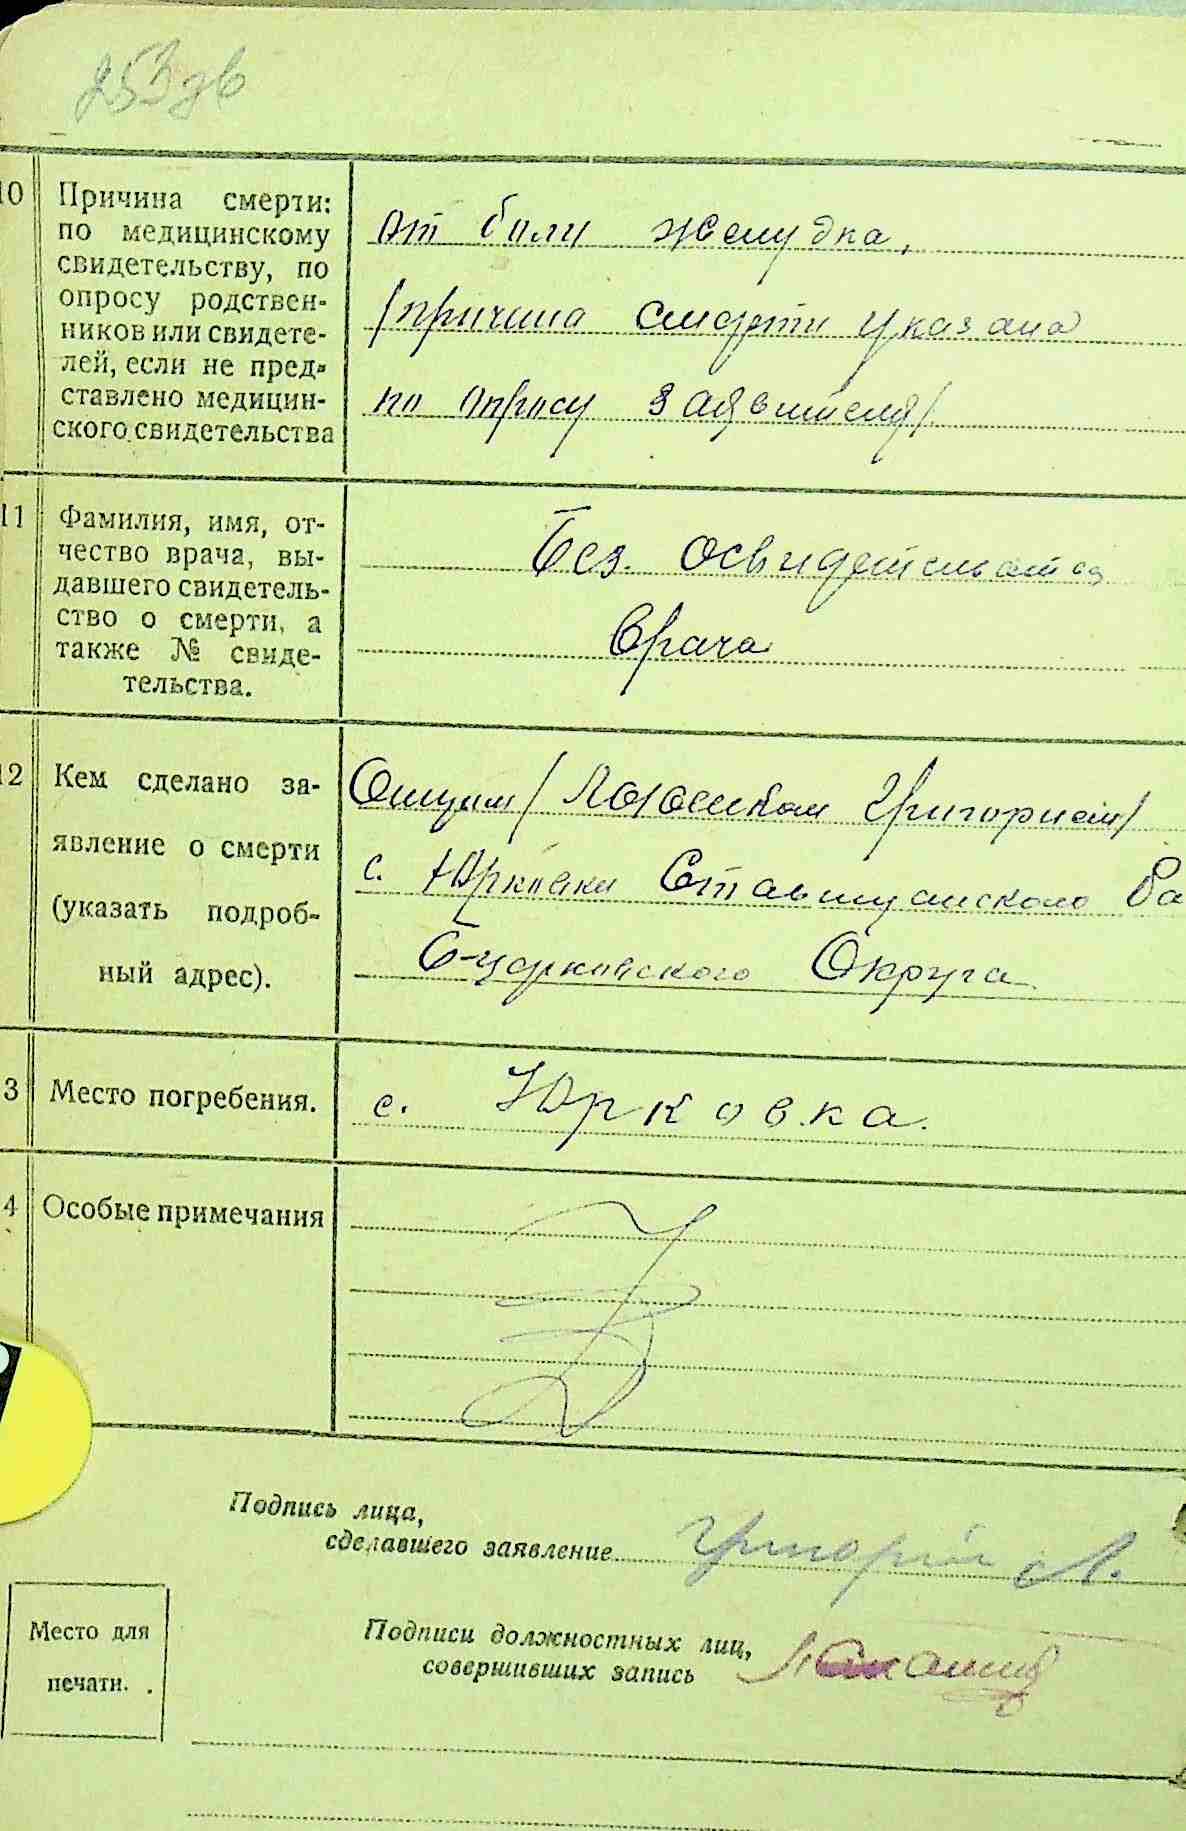 253 зв
10 Причина смерти:
по медицинскому
свидетельству, по
опросу родствен-
ников или свидете-
лей, если не пред-
ставлено медицин-
ского свидетельства
от боли желудка,
/причина смерти указана
по опросу заявителя/.
11 Фамилия, имя, от-
чество врача, вы-
давшего свидетель-
ство о смерти, а
также № свиде-
тельства.
Без освидетельства
врача
12 Кем сделано за-
явление о смерти
(указать подроб-
ный адрес).
Отцом / Григорием/
с. Юрковки Ставищанского Ра
Б-церковского Округа
3 Место погребения.
с. Юрковка.
4 Особые примечания
Подпись лица,
сделавшего заявление Григорій Л.
Место для
печати.
Подписи должностных лиц,
совершивших запись